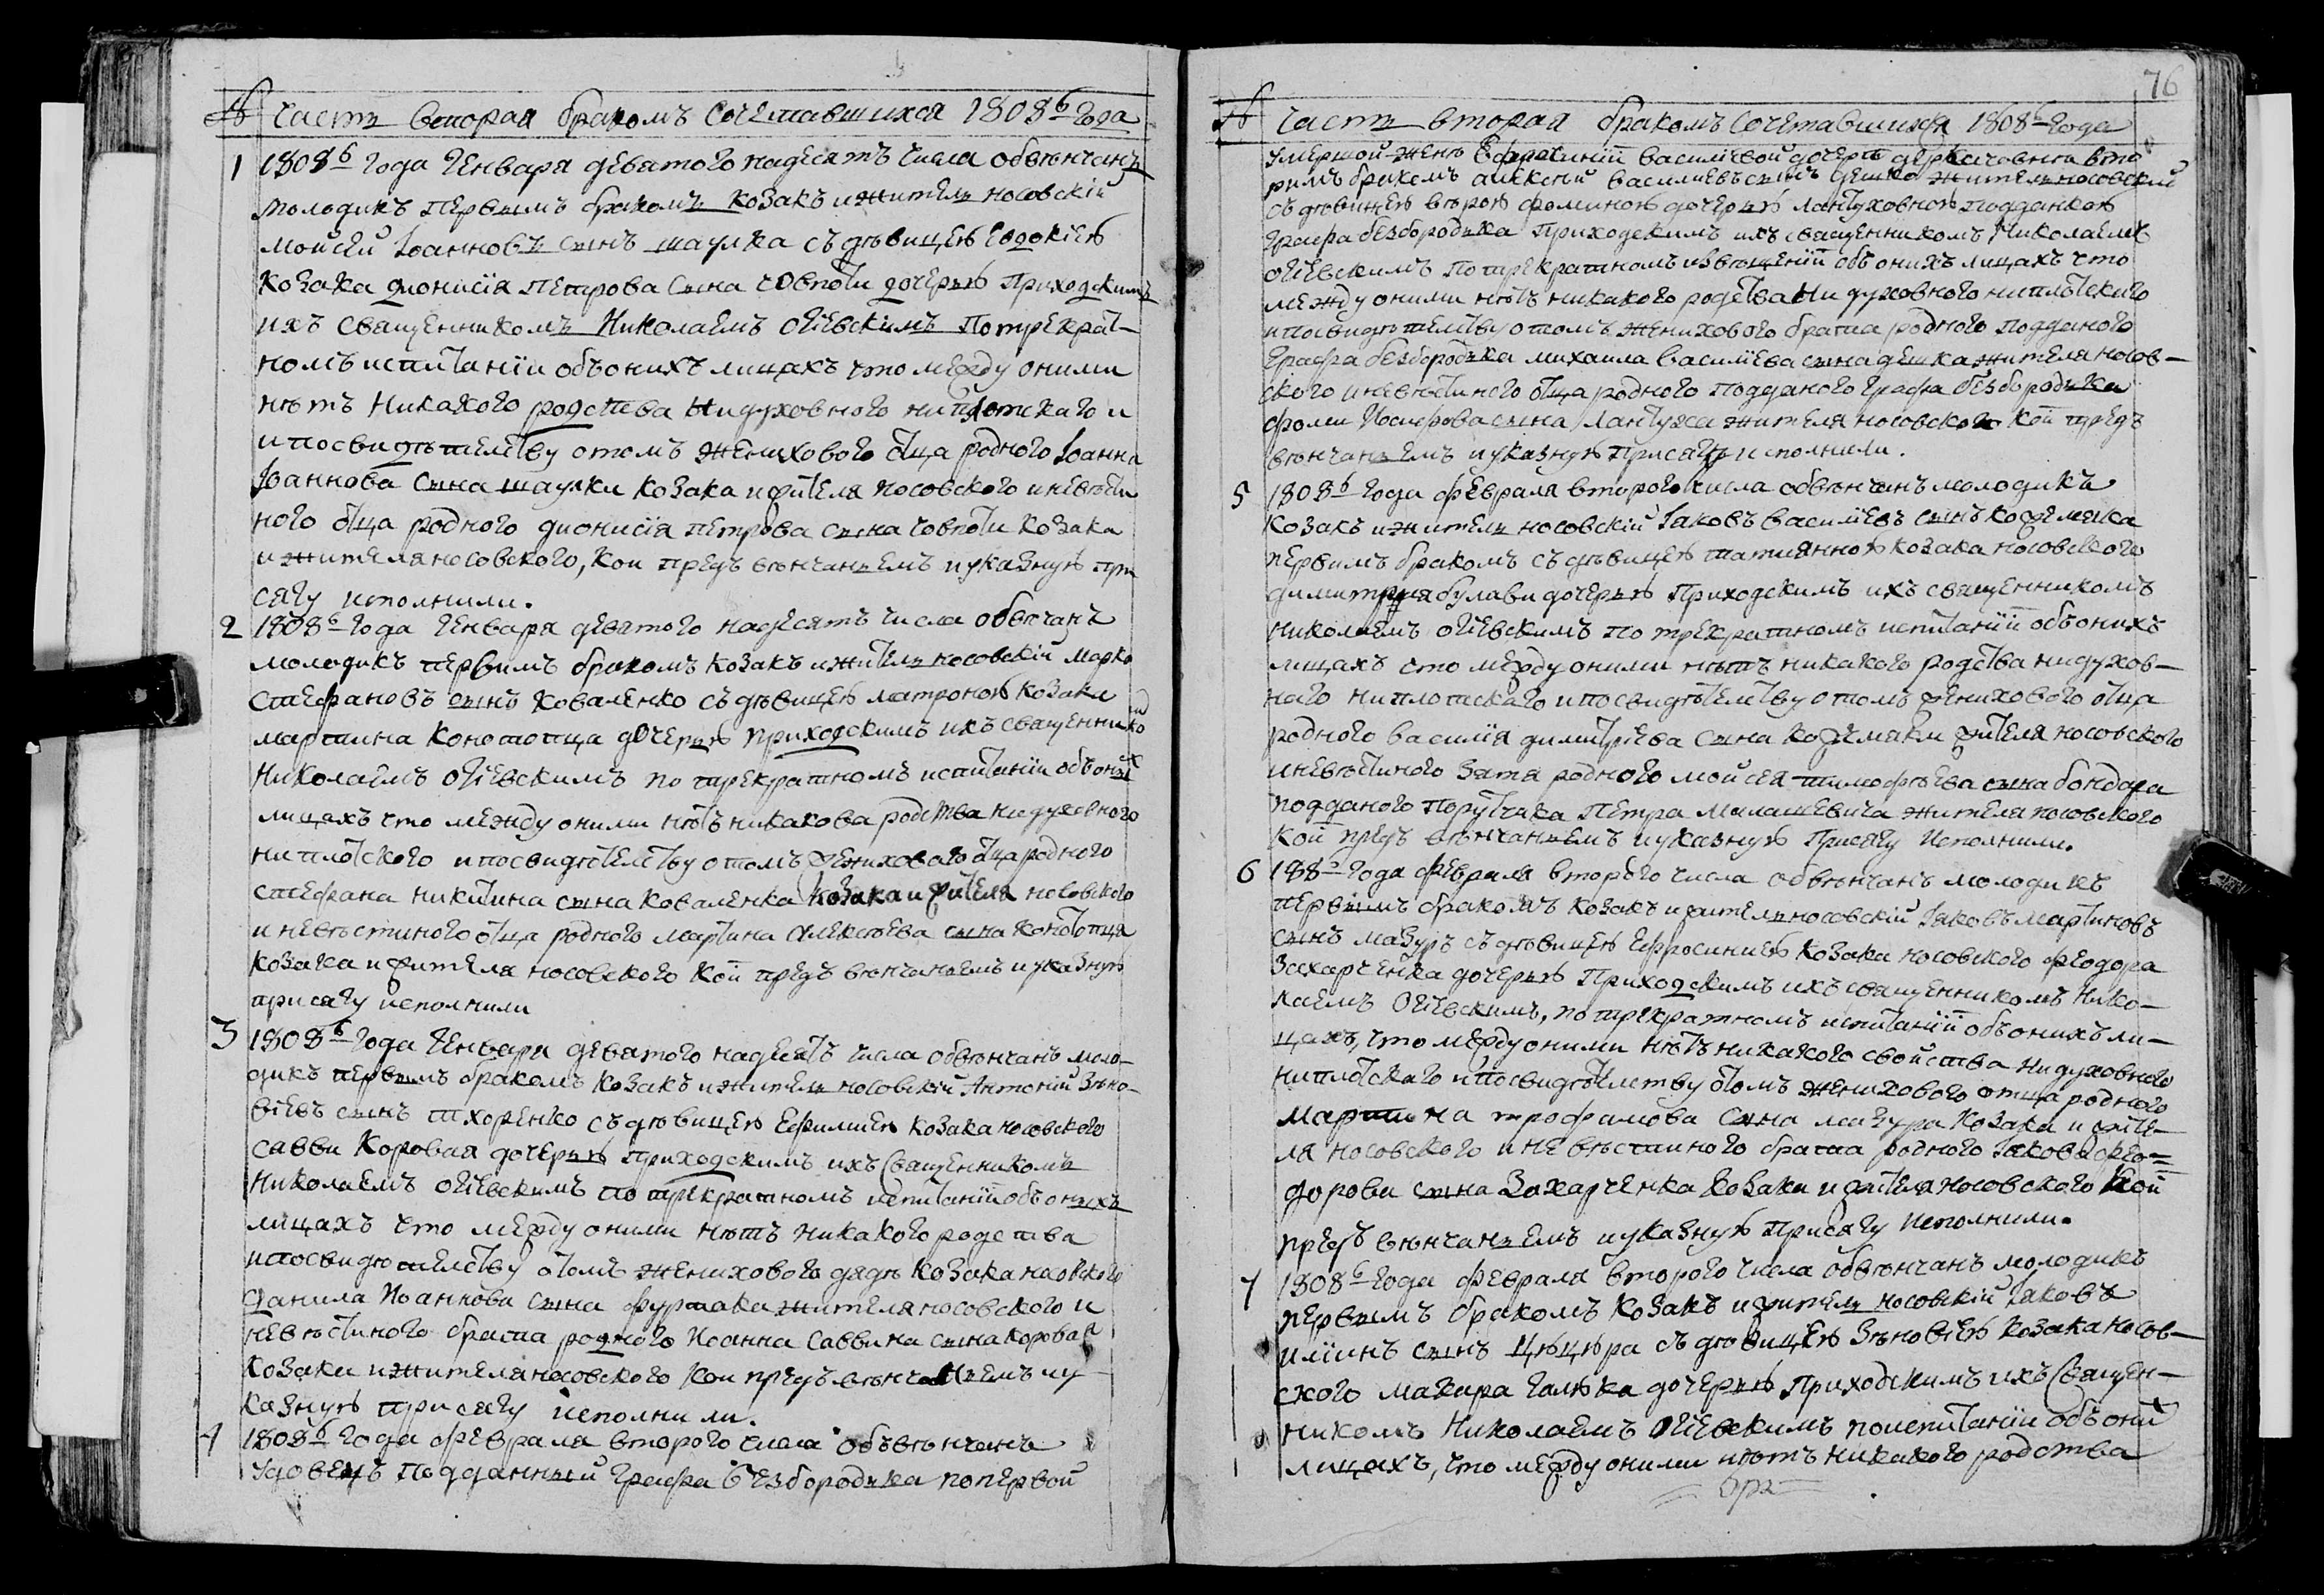 № Часть вторая бракомъ сочетавшихся 1808г года
1 1808г года Генваря девятого надесятъ числа обвѣнчанъ
молодикъ первымъ бракомъ козакъ и житель носовскій
Мойсей Іоанновъ сынъ шаулка съ дѣвицею Евдокіею
козака Дионисія Петрова сына човпоти дочерью приходскимъ
ихъ священникомъ Николаемъ Огіевскимъ по трекрат-
номъ испитаніи объ онихъ лицахъ что между оними
нѣтъ никакого родства ни духовного ни плотскаго и
и по свидѣтелству о томъ женихового отца родного Іоанна
Іоаннова сына шаулки козака и жителя носовского и невѣсти
ного отца родного Дионисія Петрова сына човпоти козака
и жителя носовского, кои предъ вѣнчаньемъ и указную при
сягу исполнили.
2 1808г года Генваря девятого надесятъ числа обвѣчанъ
молодикъ первимъ бракомъ козакъ и житель носовскій Марко
Стефановъ сынъ Коваленко съ дѣвицею Матроною козака
Мартина Конотопца дочерью приходскимъ ихъ священнико
Николаемъ Огіевскимъ по трекратномъ испитаніи объ онихъ
лицахъ что между оними нѣтъ никакова родства ни духовного
ни плотского и по свидѣтелству о томъ женихового отца родного
Стефана Никитина сына Коваленка козака и жителя носовского
и невѣстиного отца родного Мартина Алексѣева сына Конотопця
козака и жителя носовского кои предъ вѣнчаньемъ и указную
присягу исполнили
3 1808г года Генваря девятого надесятъ числа обвѣнчанъ моло-
дикъ первымъ бракомъ козакъ и житель носовскій Антоній Зѣно-
віевъ сынъ тхоренко съ дѣвицею Ефиміею козака носовского
Савви Коровая дочерью приходскимъ ихъ священникомъ
Николаемъ Огіевскимъ по трекратномъ испитаніи объ онихъ
лицахъ что между оними нѣтъ никакого родства
и по свидѣтелству о томъ женихового дядѣ козака носовского
Данила Иоаннова сына фурмака жителя носовского и
невѣстиного брата родного Иоанна Саввина сына коровая
козака и жителя носовского кои предъ вѣнчаньемъ и у-
казную присягу исполнили.
4 1808г года февраля второго числа обвѣнчанъ
удовецъ подданный Графа Безбородька по первой
76
№ Часть вторая бракомъ сочетавшихся 1808г года
умершой женѣ Евфросиніи Василіевой дочерѣ вто
римъ бракомъ Алексей Василиевъ сынъ Дешко житель носовский
съ дѣвицею вѣрою фоминою дочерью Лантуховною подданкою
Графа Безбородька приходскимъ ихъ священникомъ Николаемъ
Огіевскимъ по трекратномъ извѣщеніи объ онихъ лицахъ что
между оними нѣтъ никакого родства ни духовного ни плотского
и по свидѣтелству о томъ женихового брата родного подданого
Графа Безбородька Михаила Василіева сына дешка жителя носов-
ского и невѣстиного отца родного подданого Графа Безбородька
Фоми Иосифова сына Лантуха жителя носовского кои предъ
вѣнчаньемъ и указную присягу исполнили.
5 1808г года февраля второго числа обвѣнчанъ молодикъ
козакъ и житель носовскій Іаковъ Василіевъ сынъ кожемяка
первимъ бракомъ съ дѣвицею татиянною козака носовского
димитрия булави дочерью приходскимъ ихъ священникомъ
Николаемъ Огіевскимъ по трекратномъ испитаніи объ онихъ
лицахъ что между оними нѣтъ никакого родства ни духов-
наго ни плотскаго и по свидѣтелству о томъ женихового отца
родного Василія димитріева сына кожемяки жителя носовского
и невѣстиного зятя родного Мойсея тимофѣева сына бондара
подданого поручика Петра Милашевича жителя носовского
кои предъ вѣнчаньемъ и указную присягу исполнили.
6 1808г года февраля второго числа обвѣнчанъ молодикъ
первымъ бракомъ козакъ и житель носовскій Іаковъ Мартиновъ
сынъ мазуръ съ дѣвицею Ефросиниею козака носовского феодора
Захарченка дочерью приходскимъ ихъ священникомъ Нико-
лаемъ Огіевскимъ, по трекратномъ испитаніи объ онихъ ли-
цахъ, что между оними нѣтъ никакого свойства ни духовного
ни плотскаго и по свидѣтелству о томъ женихового отца родного
Мартина трофимова сына мазура козака и жите-
ля носовского и невѣстиного брата родного Іакова фео=
дорова сына Захарченка козака и жителя носовского кои
предъ вѣнчаньемъ и указную присягу исполнили.
7 1808г года февраля второго числа обвѣнчанъ молодикъ
первымъ бракомъ козакъ и житель носовскій Іаковъ
иліинъ сынъ Цюцюра съ дѣвицею Зѣновіею козака носов-
ского Макара Галюка дочерью приходскимъ ихъ священ-
никомъ Николаемъ Огіевскимъ по испитаніи объ оних
лицахъ, что между оними нѣтъ никакого родства